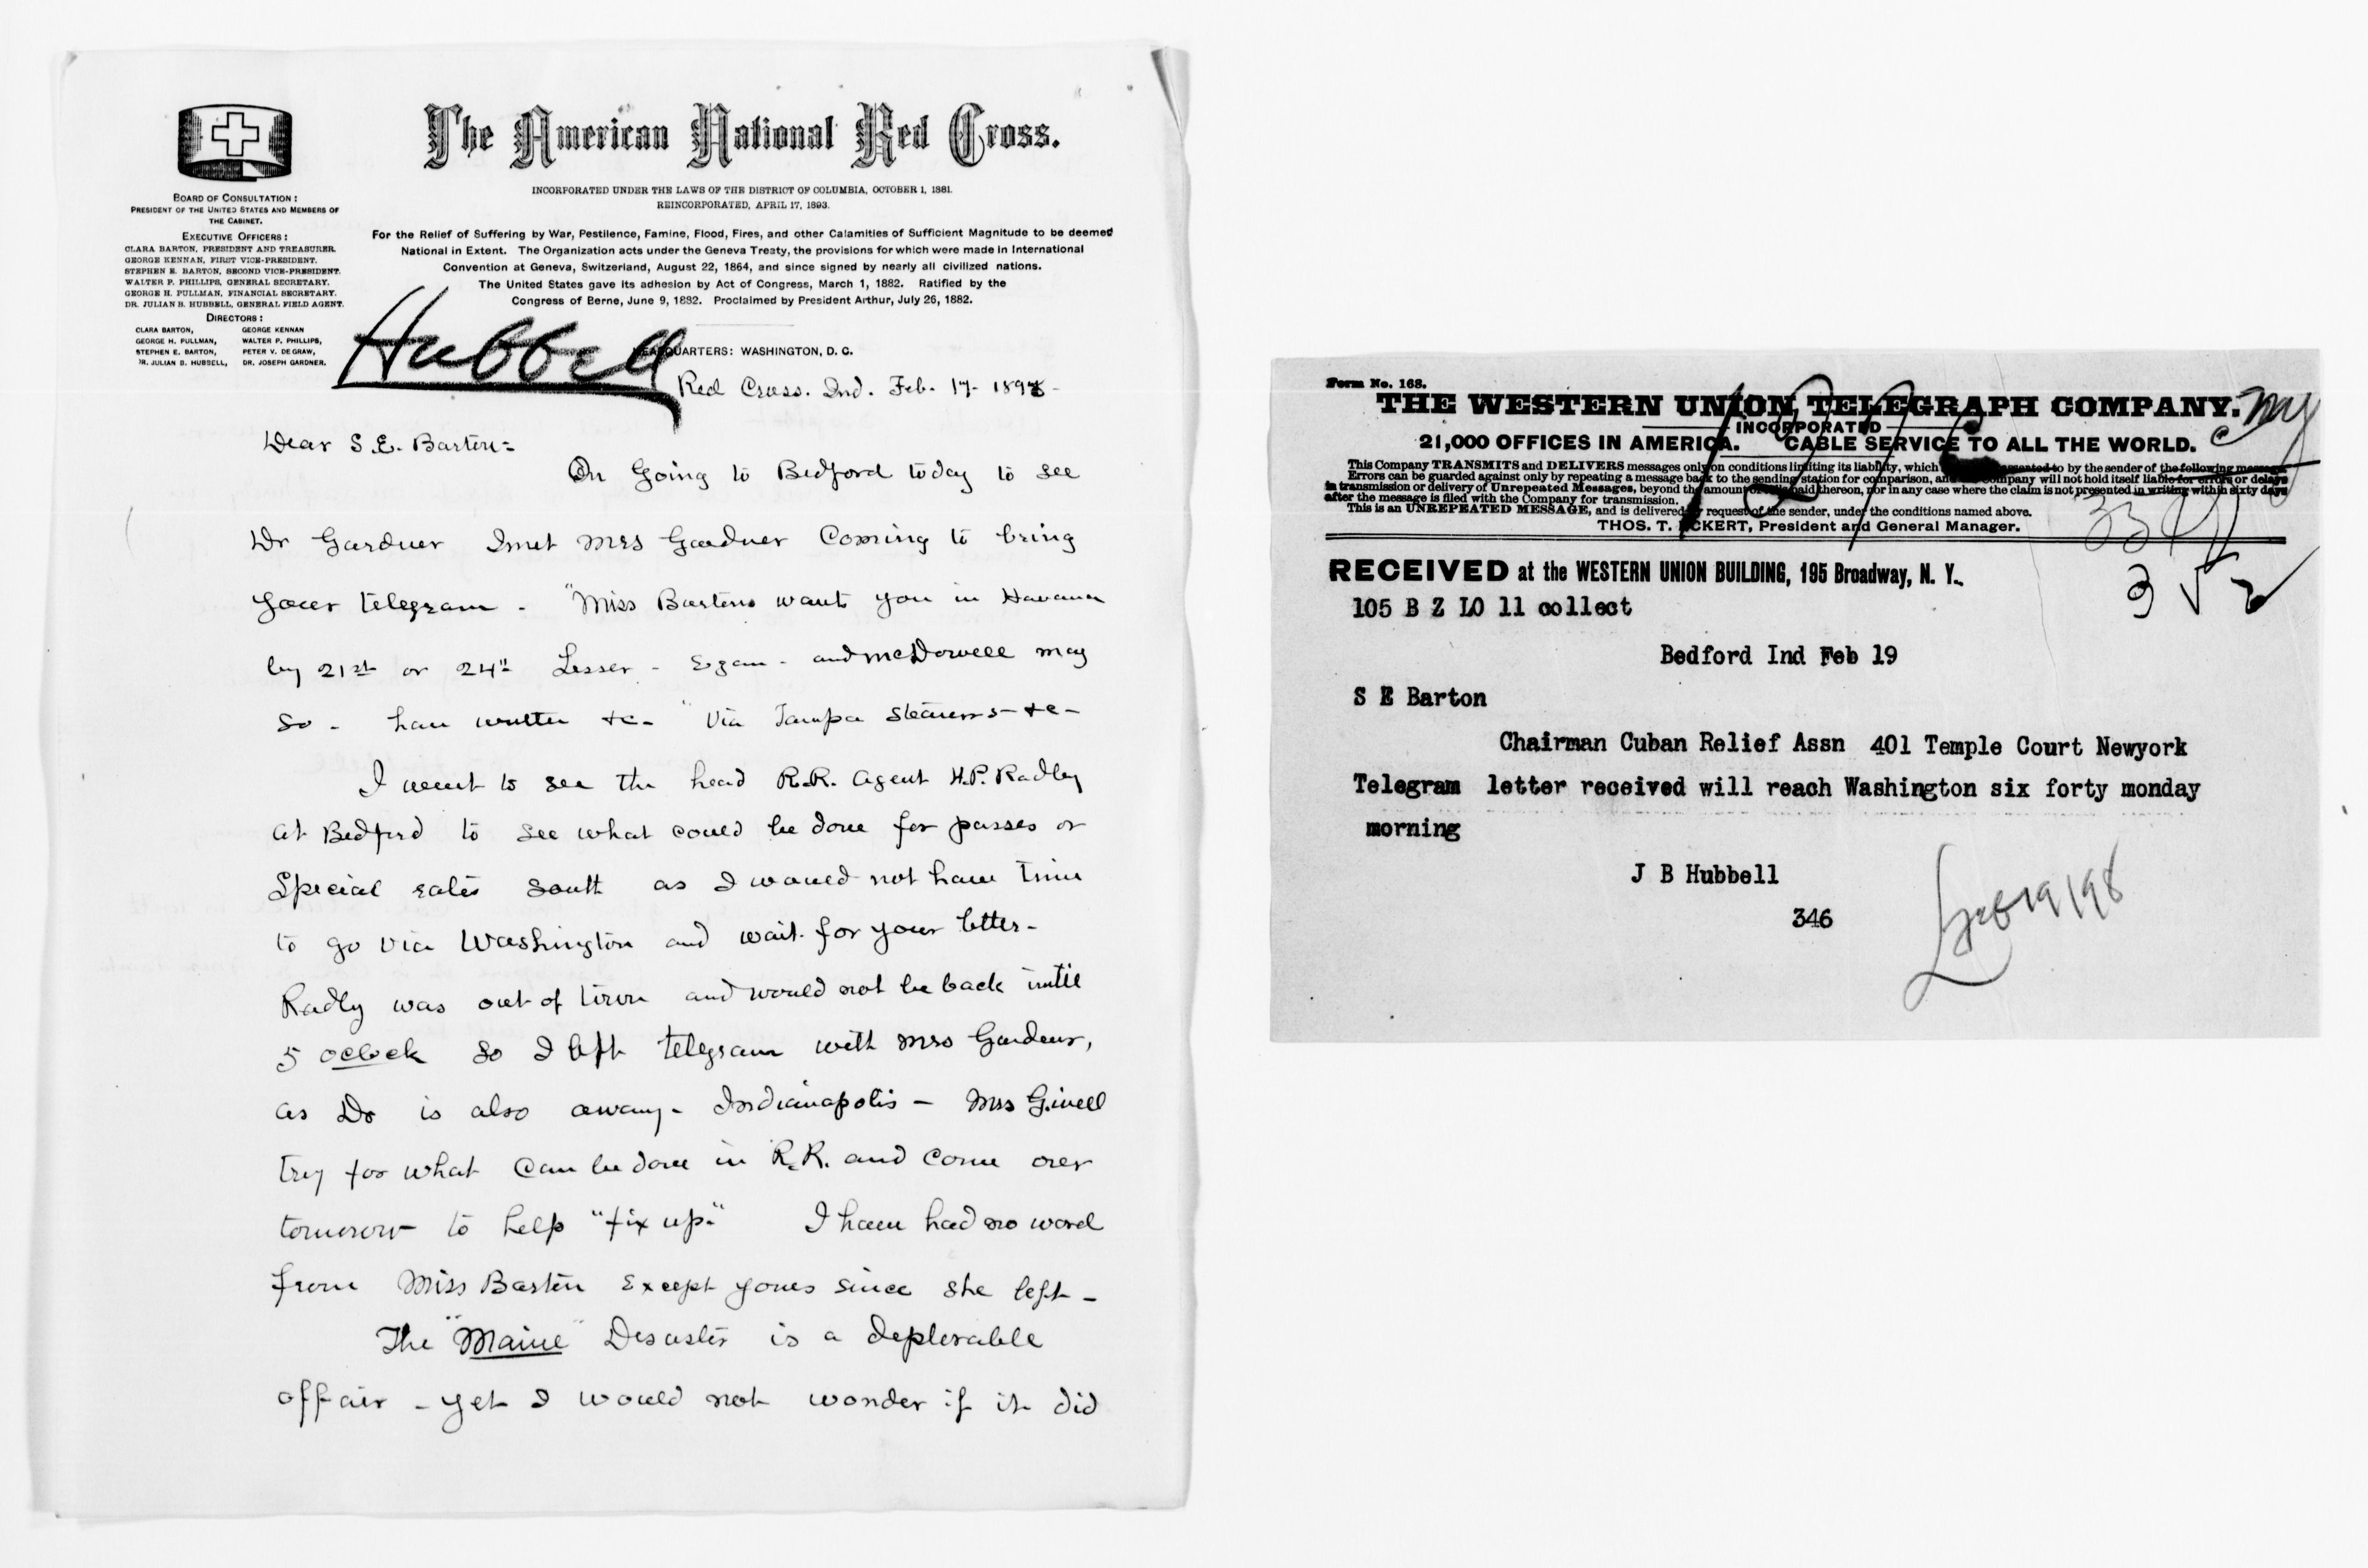 The American National Red Cross.
INCORPORATED UNDER THE LAWS OF THE DISTRICT OF COLUMBIA, OCTOBER 1, 1881.
REINCORPORATED, APRIL 17, 1893.
For the Relief of Suffering by War, Pestilence, Famine, Flood, Fires, and other Calamities of Sufficient Magnitude to be deemed
National in Extent. The Organization acts under the Geneva Treaty, the provisions for which were made in International
Convention at Geneva, Switzerland, August 22, 1864, and since signed by nearly all civilized nations.
The United States gave its adhesion by Act of Congress, March 1, 1882. Ratified by the
Congress of Berne, June 9, 1882. Proclaimed by President Arthur, July 26, 1882.
BOARD OF CONSULTATION:
PRESIDENT OF THE UNITED STATES AND MEMBERS OF
THE CABINET.
EXECUTIVE OFFICERS:
CLARA BARTON, PRESIDENT AND TREASURER.
GEORGE KENNAN, FIRST VICE-PRESIDENT.
STEPHEN E. BARTON, SECOND VICE-PRESIDENT.
WALTER P. PHILLIPS, GENERAL SECRETARY.
GEORGE H. PULLMAN, FINANCIAL SECRETARY.
DR. JULIAN B. HUBBELL, GENERAL FIELD AGENT.
DIRECTORS:
CLARA BARTON, GEORGE KENNAN
GEORGE H. PULLMAN, WALTER P. PHILLIPS,
STEPHEN E. BARTON, PETER V. DEGRAW,
DR. JULIAN B. HUBBELL, DR. JOSEPH GARDNER.
Hubbell
HEADQUARTERS: WASHINGTON, D. C.
Red Cross. Ind. Feb. 17- 1898-
Dear S.E. Barton:
On Going to Bedford today to see
Dr Gardner I met Mrs Gardner Coming to bring
your telegram - "Miss Bartons wants you in Havana
by 21st or 24" Lesser - Egan - and McDowell may
So - have written &c- " Via Tampa Steamers - &c -
I went to see the head R.R. agent H.P. Radley
at Bedford to see what could be done for passes or
Special rates South as I would not have time
to go via Washington and wait for your letter-
Radly was out of town and would not be back until
5 oclock So I left telegram with Mrs Gardner,
as Dr is also away - Indianapolis - Mrs G. will
try for what can be done in R.R. and come over
tomorow to help "fix up." I have had no word
from Miss Barton Except yours since she left -
The "Maine" Desaster is a deplorable
affair - yet I would not wonder if it did
Form No. 168.
THE WESTERN UNION TELEGRAPH COMPANY.
INCORPORATED
21,000 OFFICES IN AMERICA. CABLE SERVICE TO ALL THE WORLD.
This Company TRANSMITS and DELIVERS messages only on conditions limiting its liability, which assented to by the sender of the following message.
Errors can be guarded against only by repeating a message back to the sending station for comparison, and Company will not hold itself liable for errors or delays
in transmission or delivery of Unrepeated Messages, beyond the amount paid thereon, nor in any case where the claim is not presented in writing within sixty days
after the message is filed with the Company for transmission.
This is an UNREPEATED MESSAGE, and is delivered by request of the sender, under the conditions named above.
THOS. T. ECKERT, President and General Manager.
RECEIVED at the WESTERN UNION BUILDING, 195 Broadway, N. Y.
105 B Z LO 11 collect
Bedford Ind Feb 19
S E Barton
Chairman Cuban Relief Assn 401 Temple Court Newyork
Telegram letter received will reach Washington six forty monday
morning
J B Hubbell
346
Feb 19 / 98